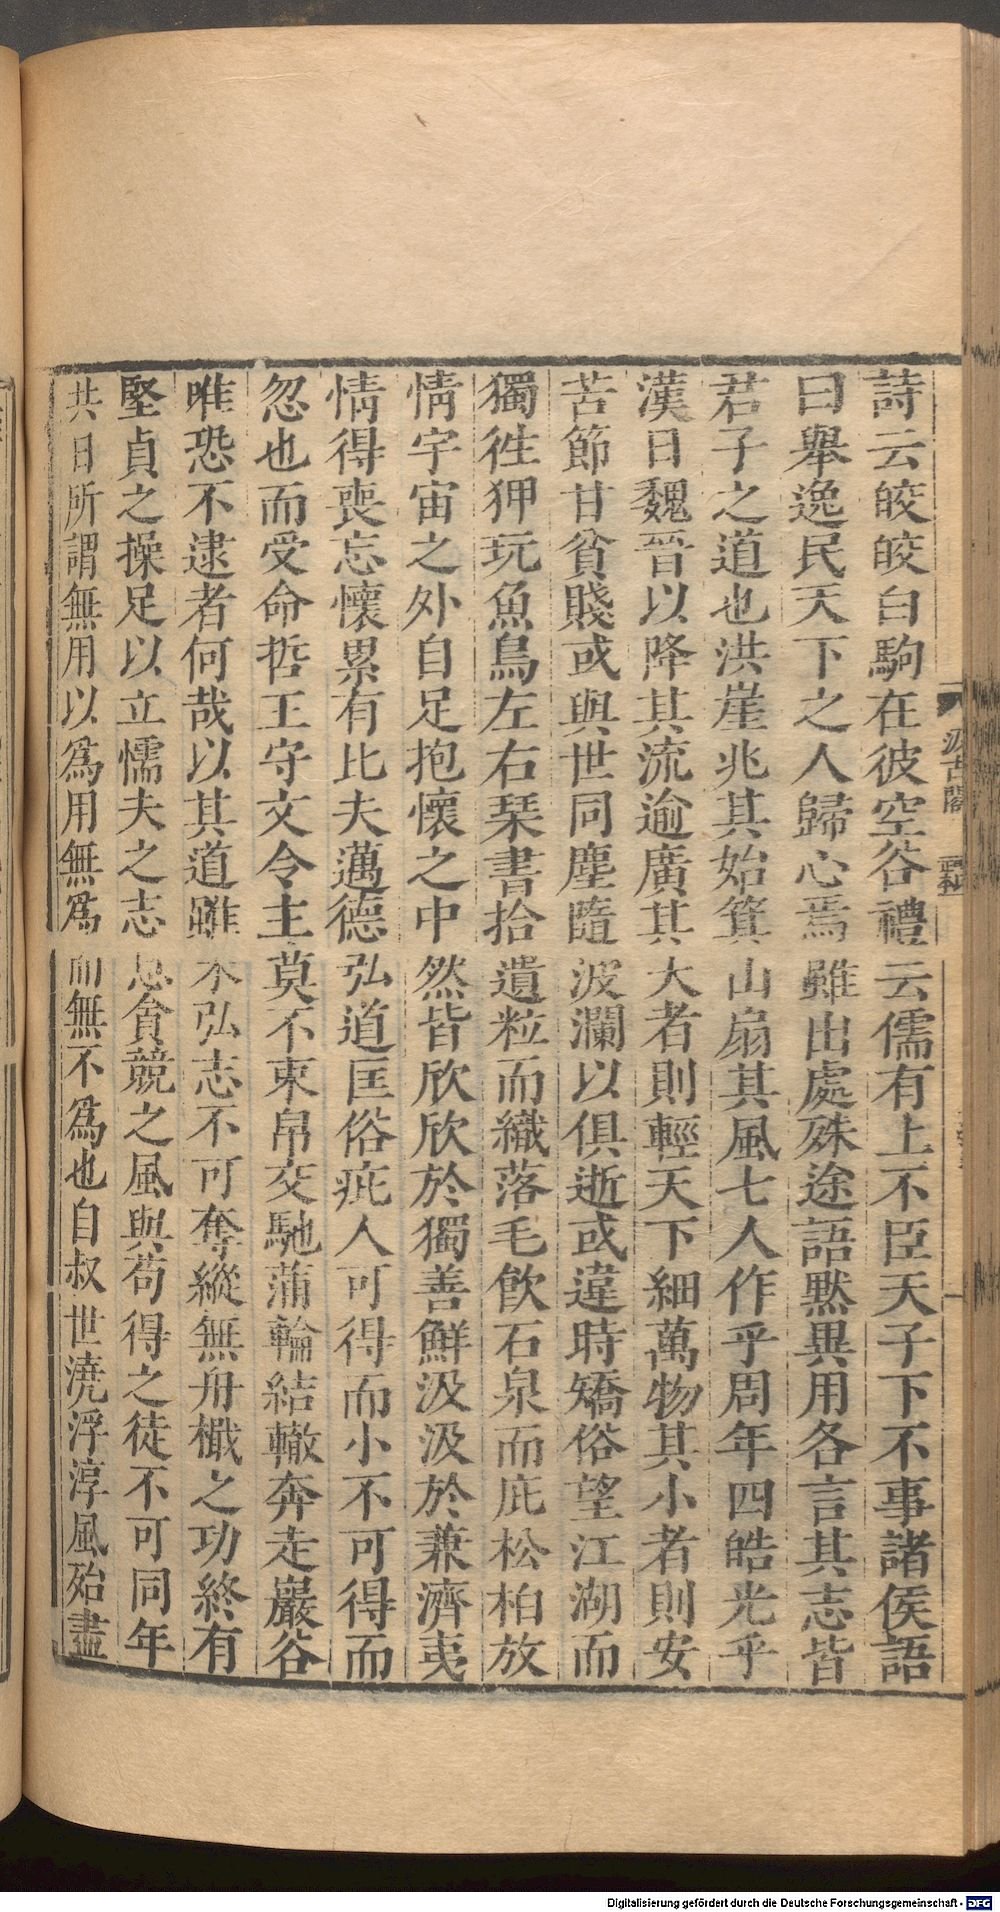 詩云皎皎白駒在彼空谷禮云儒有上不臣天子下不事諸侯語
曰舉逸民天下之人歸心焉雖出處殊途語默異用各言其志皆
君子之道也洪崖兆其始箕山扇其風七人作乎周年四皓光乎
漢日魏晉以降其流逾廣其大者則輕天下細萬物其小者則安
苦節甘貧賤或與世同塵隨波瀾以俱逝或違時矯俗望江湖而
獨徃狎玩魚鳥左右琹書拾遺粒而織落毛飮石泉而庇松柏放
情宇宙之外自足抱懷之中然皆欣欣於獨善鮮汲汲於兼濟夷
情得喪忘懷累有比夫邁德弘道匡俗疵人可得而小不可得而
忽也而受命哲王守文令主莫不束帛交馳蒲輪結轍奔走巖谷
唯恐不逮者何哉以其道雖未弘志不可奪縱無舟檝之功終有
堅貞之操足以立懦夫之志息貪競之風與苟得之徒不可同年
共日所謂無用以爲用無爲而無不爲也自叔世澆浮淳風殆盡
汲古閣
Digitalisierung gefördert durch die Deutsche Forschungsgemeinschaft - DFG